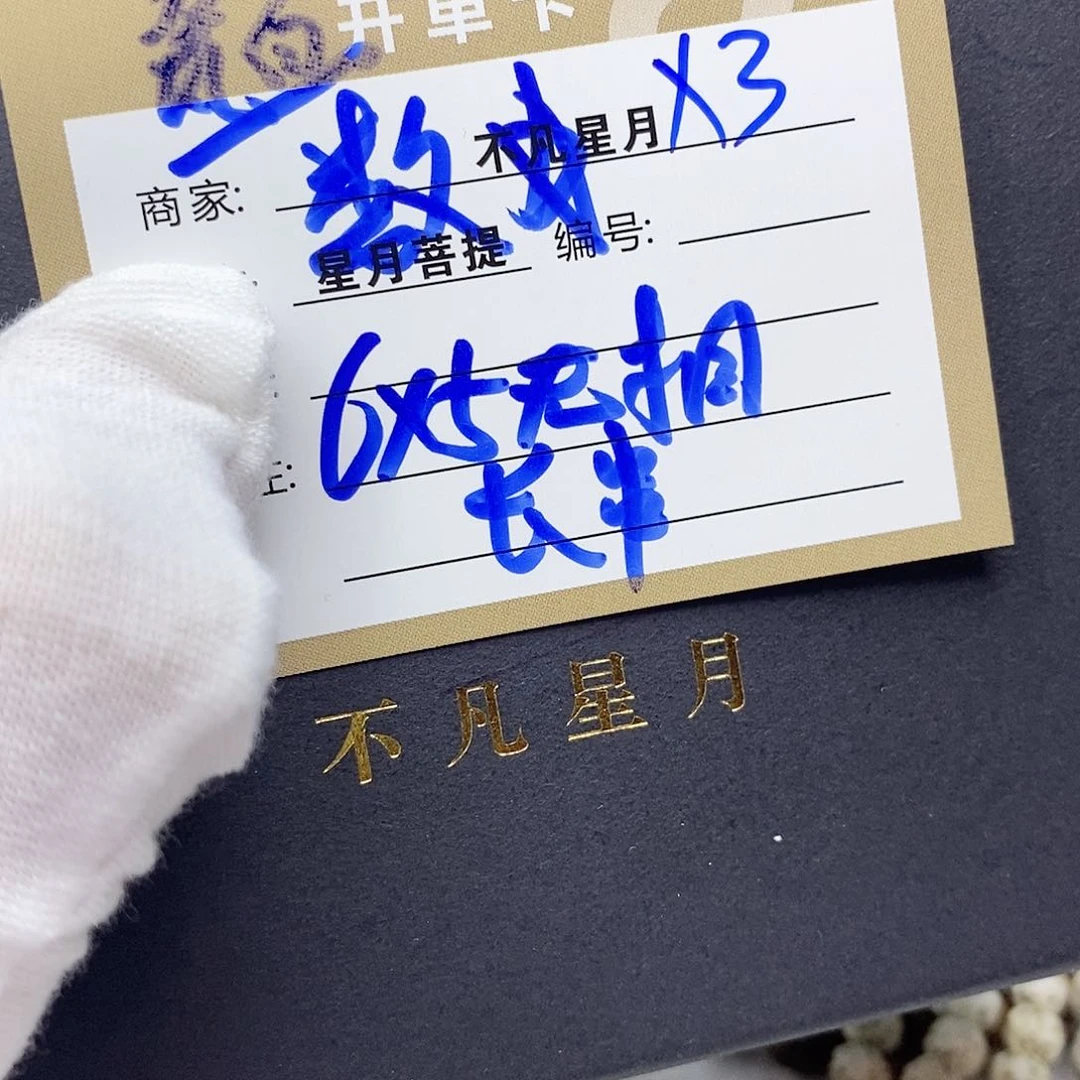 开单卡
不凡星月 X3
商家:
星月菩提 编号:
6X5无捆
长半
不凡星月